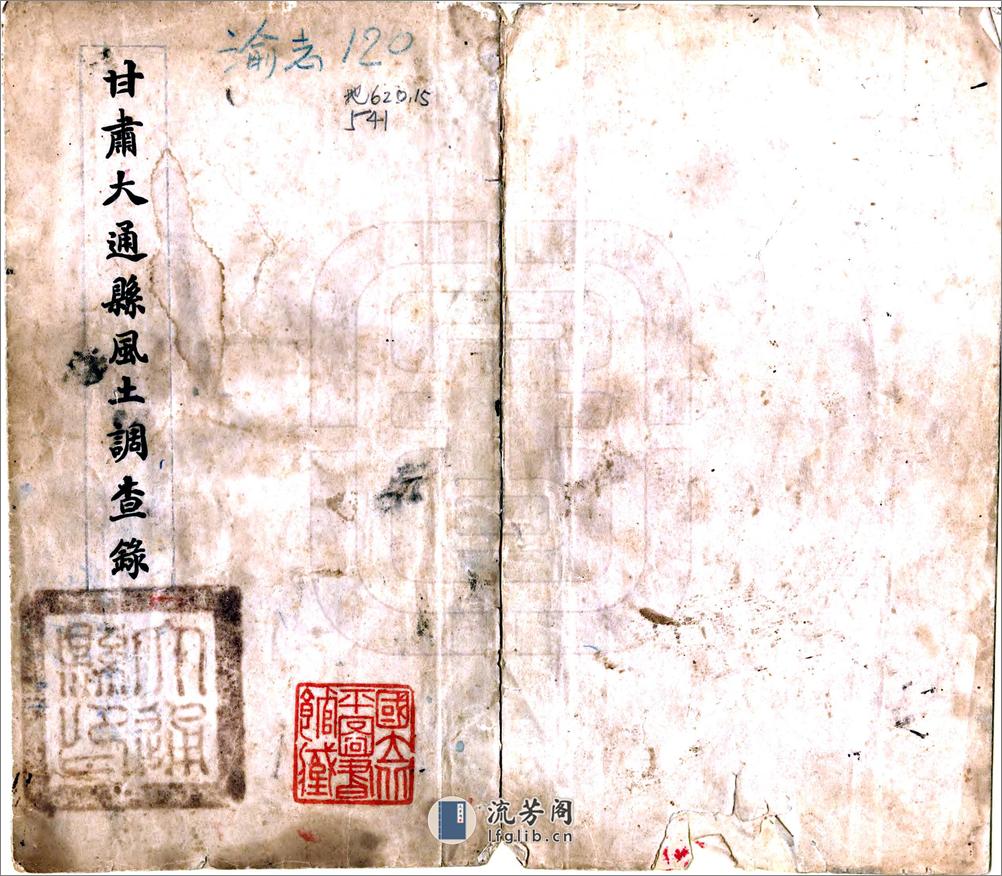 渝志120
地620.15
541
甘肅大通縣風土調查錄
大通
縣印
國立
北平圖書
館藏
流芳阁
lfglib.cn